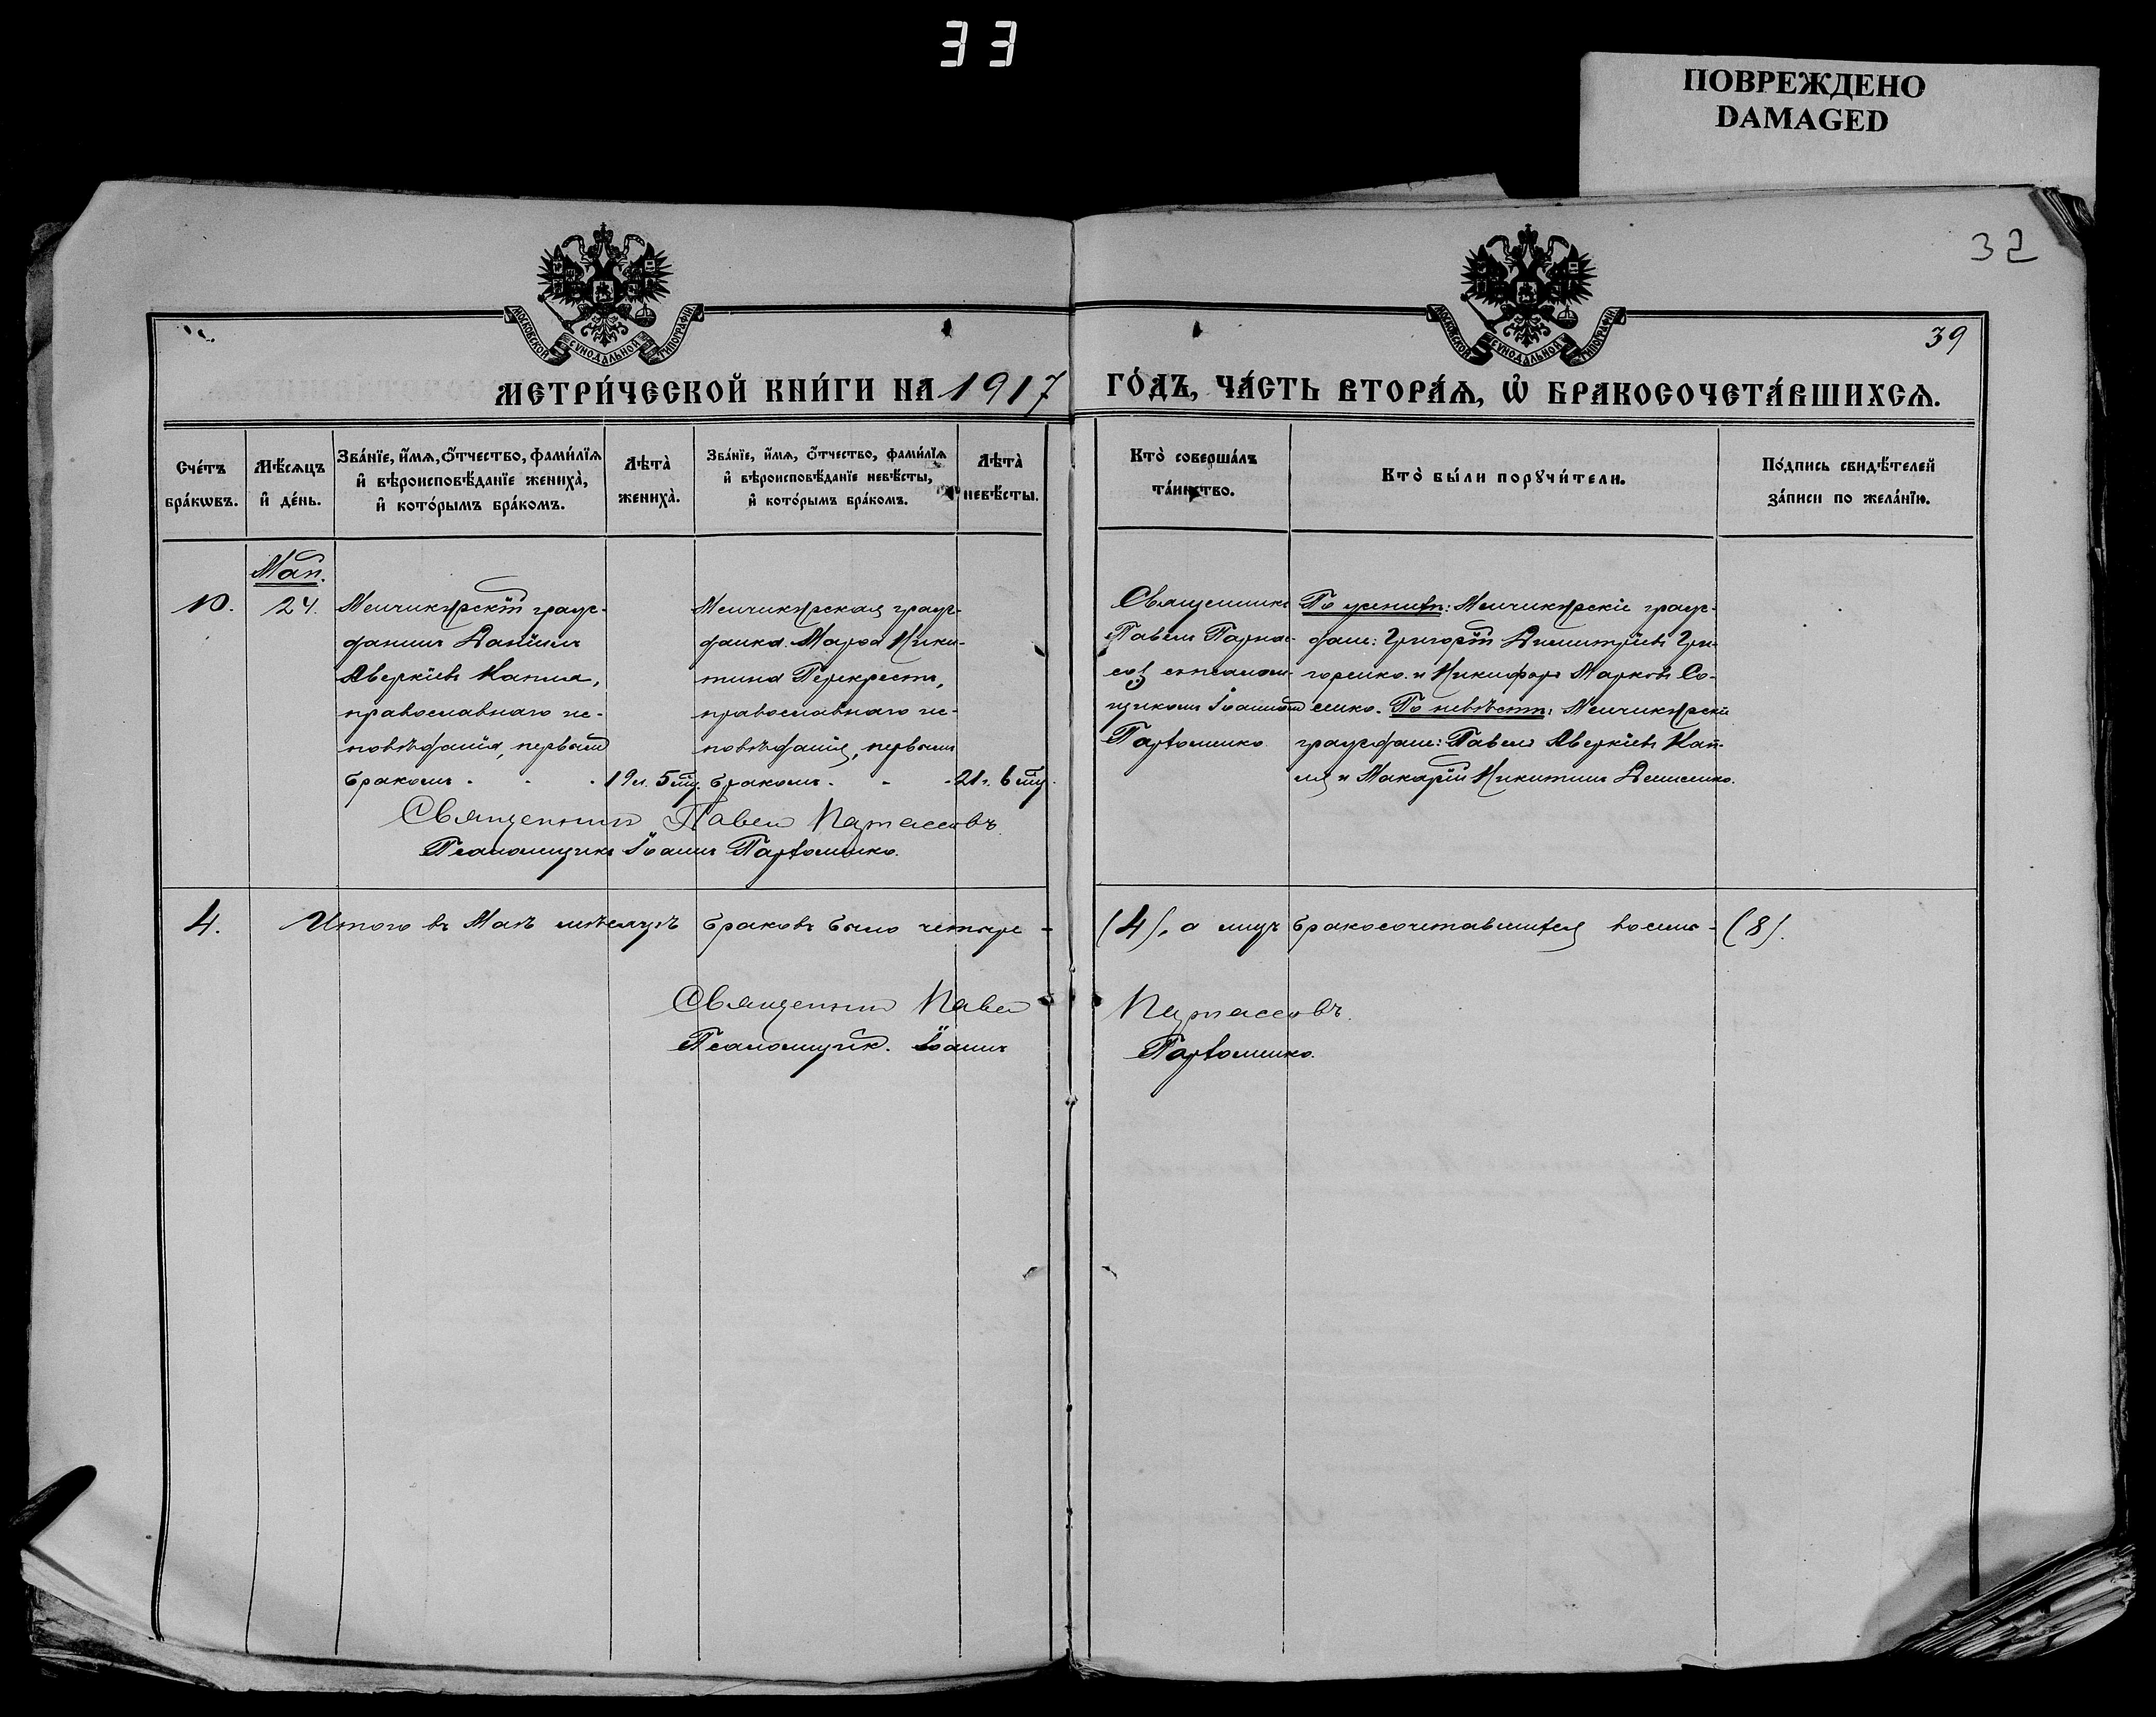 33
ПОВРЕЖДЕНО
DAMAGED
32
39
МОСКОВСКОЙ СУНОДАЛЬНОЙ ТИПОГРАФІИ
МОСКОВСКОЙ СУНОДАЛЬНОЙ ТИПОГРАФІИ
МЕТРИ́ЧЕСКОЙ КНИ́ГИ НА 1917 ГО́ДЪ, ЧА́СТЬ ВТОРА́Ѧ, Ѡ҆ БРАКОСОЧЕТА́ВШИХСѦ.
Сче́тъ
бра́кѡвъ.
Мѣ́сѧцъ
и҆ де́нь.
Зва́нїе, и҆́мѧ, ѻ҆́тчество, фами́лїѧ
и҆ вѣроисповѣ́данїе жениха̀,
и҆ кото́рымъ бра́комъ.
Лѣта̀
жениха̀.
Зва́нїе, и҆́мѧ, ѻ҆́тчество, фами́лїѧ
и҆ вѣроисповѣ́данїе невѣ́сты,
и҆ кото́рымъ бра́комъ.
Лѣта̀
невѣ́сты.
Кто̀ соверша́лъ
та́инство.
Кто̀ бы́ли порꙋчи́тели.
По́дпись свидѣ́телей
за́писи по жела́нїю.
Май.
10.
24.
Менчикурскій граж-
данинъ Даніилъ
Аверкіевъ Капля,
православнаго ис-
повѣданія, первымъ
бракомъ. . .
19 л. 5 мц.
Менчикурская граж-
данка Марѳа Ники-
тина Перекрестъ,
православнаго ис-
повѣданія, первымъ
бракомъ. - -
21 г. 6 мц.
Священникъ
Павелъ Парнас-
совъ съ псалом-
щикомъ Іоанномъ
Пархоменко.
По женихѣ: Менчикурскіе граж-
дане: Григорій Димитріевъ Гри-
горенко и Никифоръ Марковъ Со-
сенко. По невѣстѣ: Менчикурскіе
граждане: Павелъ Аверкіевъ Кап-
ля и Макарій Никитинъ Денисенко.
Священникъ Павелъ Парнассовъ.
Псаломщикъ Іоаннъ Пархоменко.
4. Итого въ Маѣ мѣсяцѣ браковъ было четыре - (4), а лицъ бракосочетавшихся восемь - (8).
Священникъ Павелъ Парнассовъ.
Псаломщик. Іоаннъ Пархоменко.